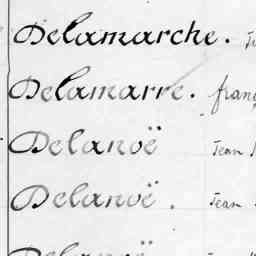 Delamarche.
Delamarre. franç
Delanoë Jean
Delanoë. Jean
Delanoë